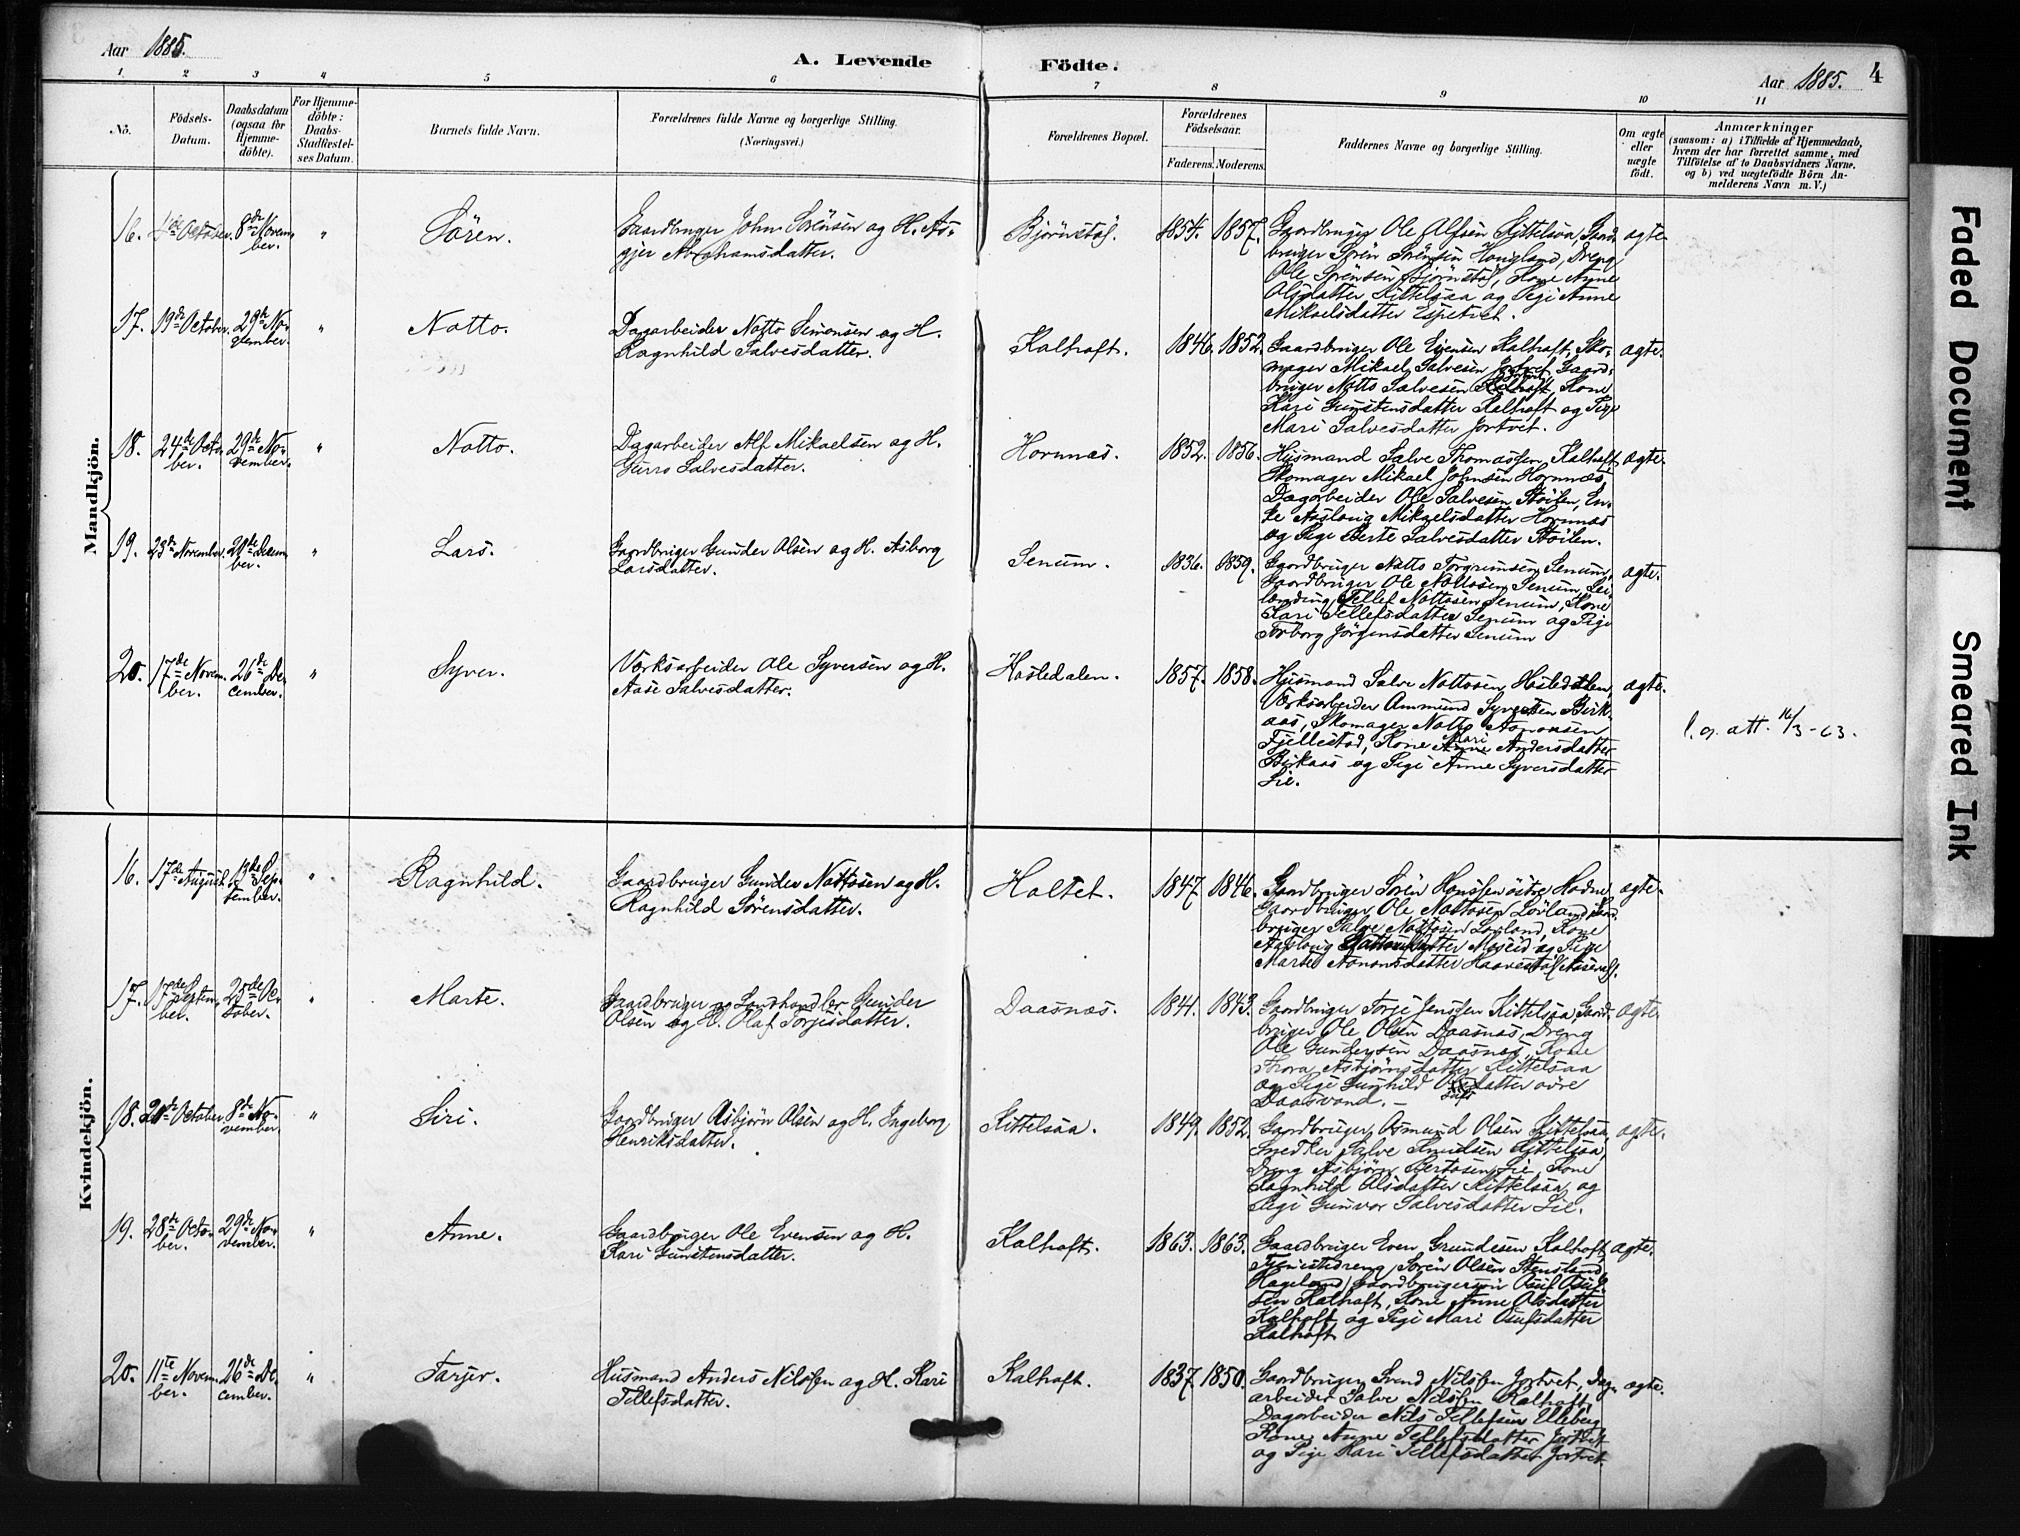 Aar 1885.
A. Levende Födte.
Aar 1885. 4
1 2 3 4 5 6 7 8 9 10 11
No.
Födsels-
Datum.
Daabsdatum
(ogsaa for
Hjemme-
döbte).
For Hjemme-
döbte:
Daabs-
Stadfæstel-
ses Datum.
Barnets fulde Navn.
Forældrenes fulde Navne og borgerlige Stilling.
(Næringsvei.)
Forældrenes Bopæl.
Forældrenes
Födselsaar.
Faderens. Moderens.
Faddernes Navne og borgerlige Stilling.
Om ægte
eller
uægte
födt.
Anmærkninger
(saasom: a) i Tilfælde af Hjemmedaab,
hvem der har forrettet samme, med
Tilföielse af to Daabsvidners Navne.
og b) ved uægtefödte Börn An-
melderens Navn m. V.)
Mandkjön.
16. 4de October. 8de Novem-
ber.
"
Sören.
Gaardbruger John Sörensen og H. As-
gjer Abrahamsdatter.
Bjørnstøl.
1854. 1857.
Gaardbruger Ole Alfsen Kittelsaa, Gaard-
bruger Sören Sörensen Hougland, Dreng
Ole Sörensen Bjørnstøl, Kone Anne
Olsdatter Kittelsaa og Pige Anne
Mikaelsdatter Espetvet.
ægte.
17. 19de October. 29de No-
vember.
"
Notto.
Dagarbeider Notto Simonsen og H.
Ragnhild Salvesdatter.
Kalhaft.
1846. 1852.
Gaardbruger Ole Evensen Kalhaft, Sko-
mager Mikael Salvesen Jortvet, Gaard-
bruger Notto Salvesen Kalhaft, Kone
Kari Gunstensdatter Kalhaft og Pige
Mari Salvesdatter Jortvet.
ægte.
18. 24de Octo-
ber.
29de No-
vember.
"
Notto.
Dagarbeider Alf Mikaelsen og H.
Gurro Salvesdatter.
Hornnæs.
1852. 1856.
Husmand Salve Thomassen Kalhaft,
Skomager Mikael Johnsen Hornnæs,
Dagarbeider Ole Salvesen Støilen, En-
ke Aaslaug Mikaelsdatter Hornnæs
og Pige Berte Salvesdatter Støilen.
ægte.
19. 23de November. 26de Decem-
ber.
"
Lars.
Gaardbruger Gunder Olsen og H. Asborg
Larsdatter.
Senum.
1836. 1859.
Gaardbruger Notto Torgrimsen Senum,
Gaardbruger Ole Nottosen Senum, Lei-
lænding Tellef Nottosen Senum, Kone
Kari Tellefsdatter Senum og Pige
Torborg Jörgensdatter Senum
ægte.
20. 17de Novem-
ber.
26de De-
cember.
"
Syver.
Værksarbeider Ole Syversen og H.
Aase Salvesdatter.
Hasledalen.
1857. 1858.
Husmand Salve Nottosen Hasledalen,
Værksarbeider Ammund Syversen Birk-
aas, Skomager Notto Aanonsen
Fjellestad, Kone Mari Andersdatter
Birkaas og Pige Anne Syversdatter
Lie.
ægte.
l. a. att. 16/3-63.
Kvindekjön.
16. 17de August. 13de Sep-
tember.
"
Ragnhild.
Gaardbruger Gunder Nottosen og H.
Ragnhild Sörensdatter.
Holtet.
1847. 1846.
Gaardbruger Sören Hanssen østre Hodne,
Gaardbruger Ole Nottosen Lövland, Gaard-
bruger Salve Nottosen Lövland, Kone
Aaslaug Nottosdatter og Pige
Marte Aanonsdatter
ægte.
17. 17de Septem-
ber.
25de Oc-
tober.
"
Marte.
Gaardbruger og Landhandler Gunder
Olsen og H. Olaf Torjesdatter.
Daasnæs.
1841. 1843.
Gaardbruger Torje Jenssen Kittelsaa, Gaard-
bruger Ole Olsen Daasnæs, Dreng
Ole Gundersen Daasnæs, Kone
Thora Asbjørnsdatter Kittelsaa
og Pige Gunhild datter øvre
Daasvand.
ægte.
18. 20de October. 8de No-
vember.
"
Siri.
Gaardbruger Asbjørn Olsen og H. Ingeborg
Henriksdatter.
Kittelsaa.
1849. 1852.
Gaardbruger Osmund Olsen Kittelsaa,
Snedker Salve Knudsen Kittelsaa,
Dreng Asbjørn Bertosen Lie, Kone
Ragnhild Olsdatter Kittelsaa og
Pige Gunvor Salvesdatter Lie.
ægte.
19. 28de Octo-
ber.
29de No-
vember.
"
Anne.
Gaardbruger Ole Evensen og H.
Kari Gunstensdatter.
Kalhaft.
1863. 1863.
Gaardbruger Even Gundersen Kalhaft,
Tjenestedreng Sören Olsen Stensland,
Hægeland, Gaardbrugersøn Osuf Osuf-
sen Kalhaft, Kone Anne Olsdatter
Kalhaft og Pige Mari Osufsdatter
Kalhaft
ægte.
20. 11te Novem-
ber.
26de De-
cember.
"
Tarjer.
Husmand Anders Nilssen og H. Kari
Tellefsdatter.
Kalhaft.
1837. 1850.
Gaardbruger Svend Nilssen Jortvet, Dag-
arbeider Salve Nilssen Kalhaft,
Dagarbeider Nils Tellefsen Elleberg
Kone Anne Tellefsdatter Jortvet
og Pige Kari Tellefsdatter Jortvet.
ægte.
Faded Document
Smeared Ink